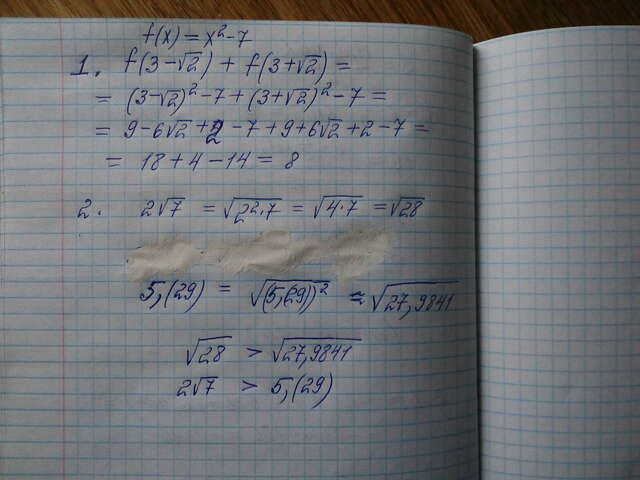 f(x) = x²-7
1. f(3-√2) + f(3+√2) =
= (3-√2)² -7 + (3+√2)² -7 =
= 9-6√2 +2 -7 +9+6√2 +2 -7 =
= 18 + 4 - 14 = 8
2. 2√7 = √2²·7 = √4·7 = √28
5,(29) = √(5,(29))² ≈ √27,9841
√28 > √27,9841
2√7 > 5,(29)